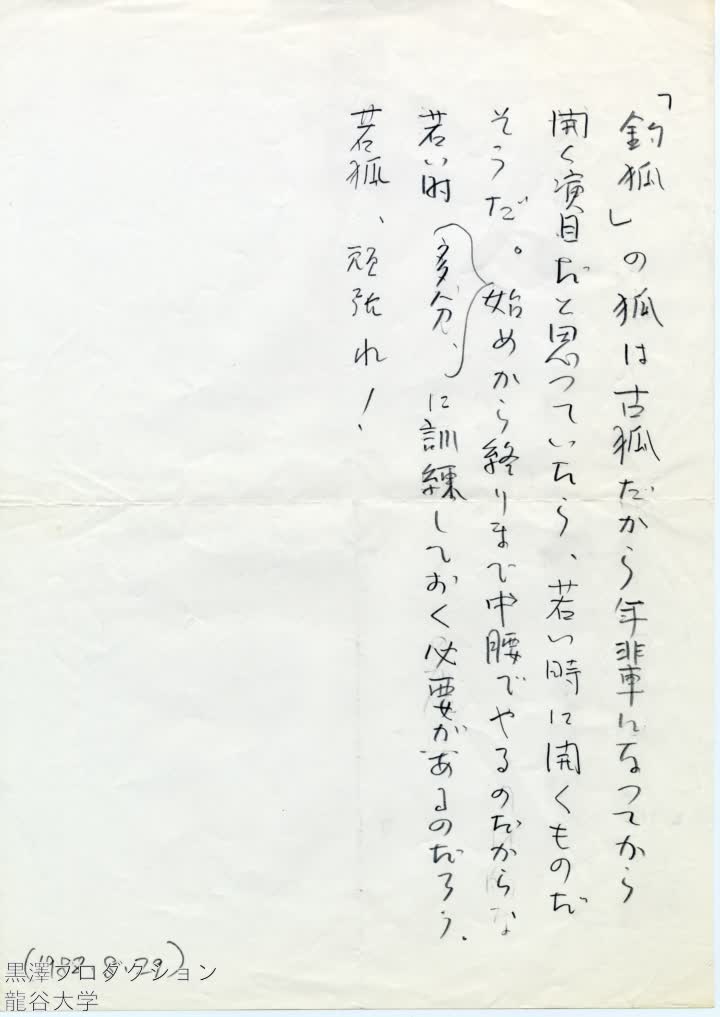 「釣狐」の狐は古狐だから年輩になってから
開く演目だと思っていたら、若い時に開くものだ
そうだ。始めから終りまで中腰でやるのだからな
若い時(多分、)に訓練しておく必要があるのだろう.
若狐、頑張れ!
黒澤プロダクション
龍谷大学